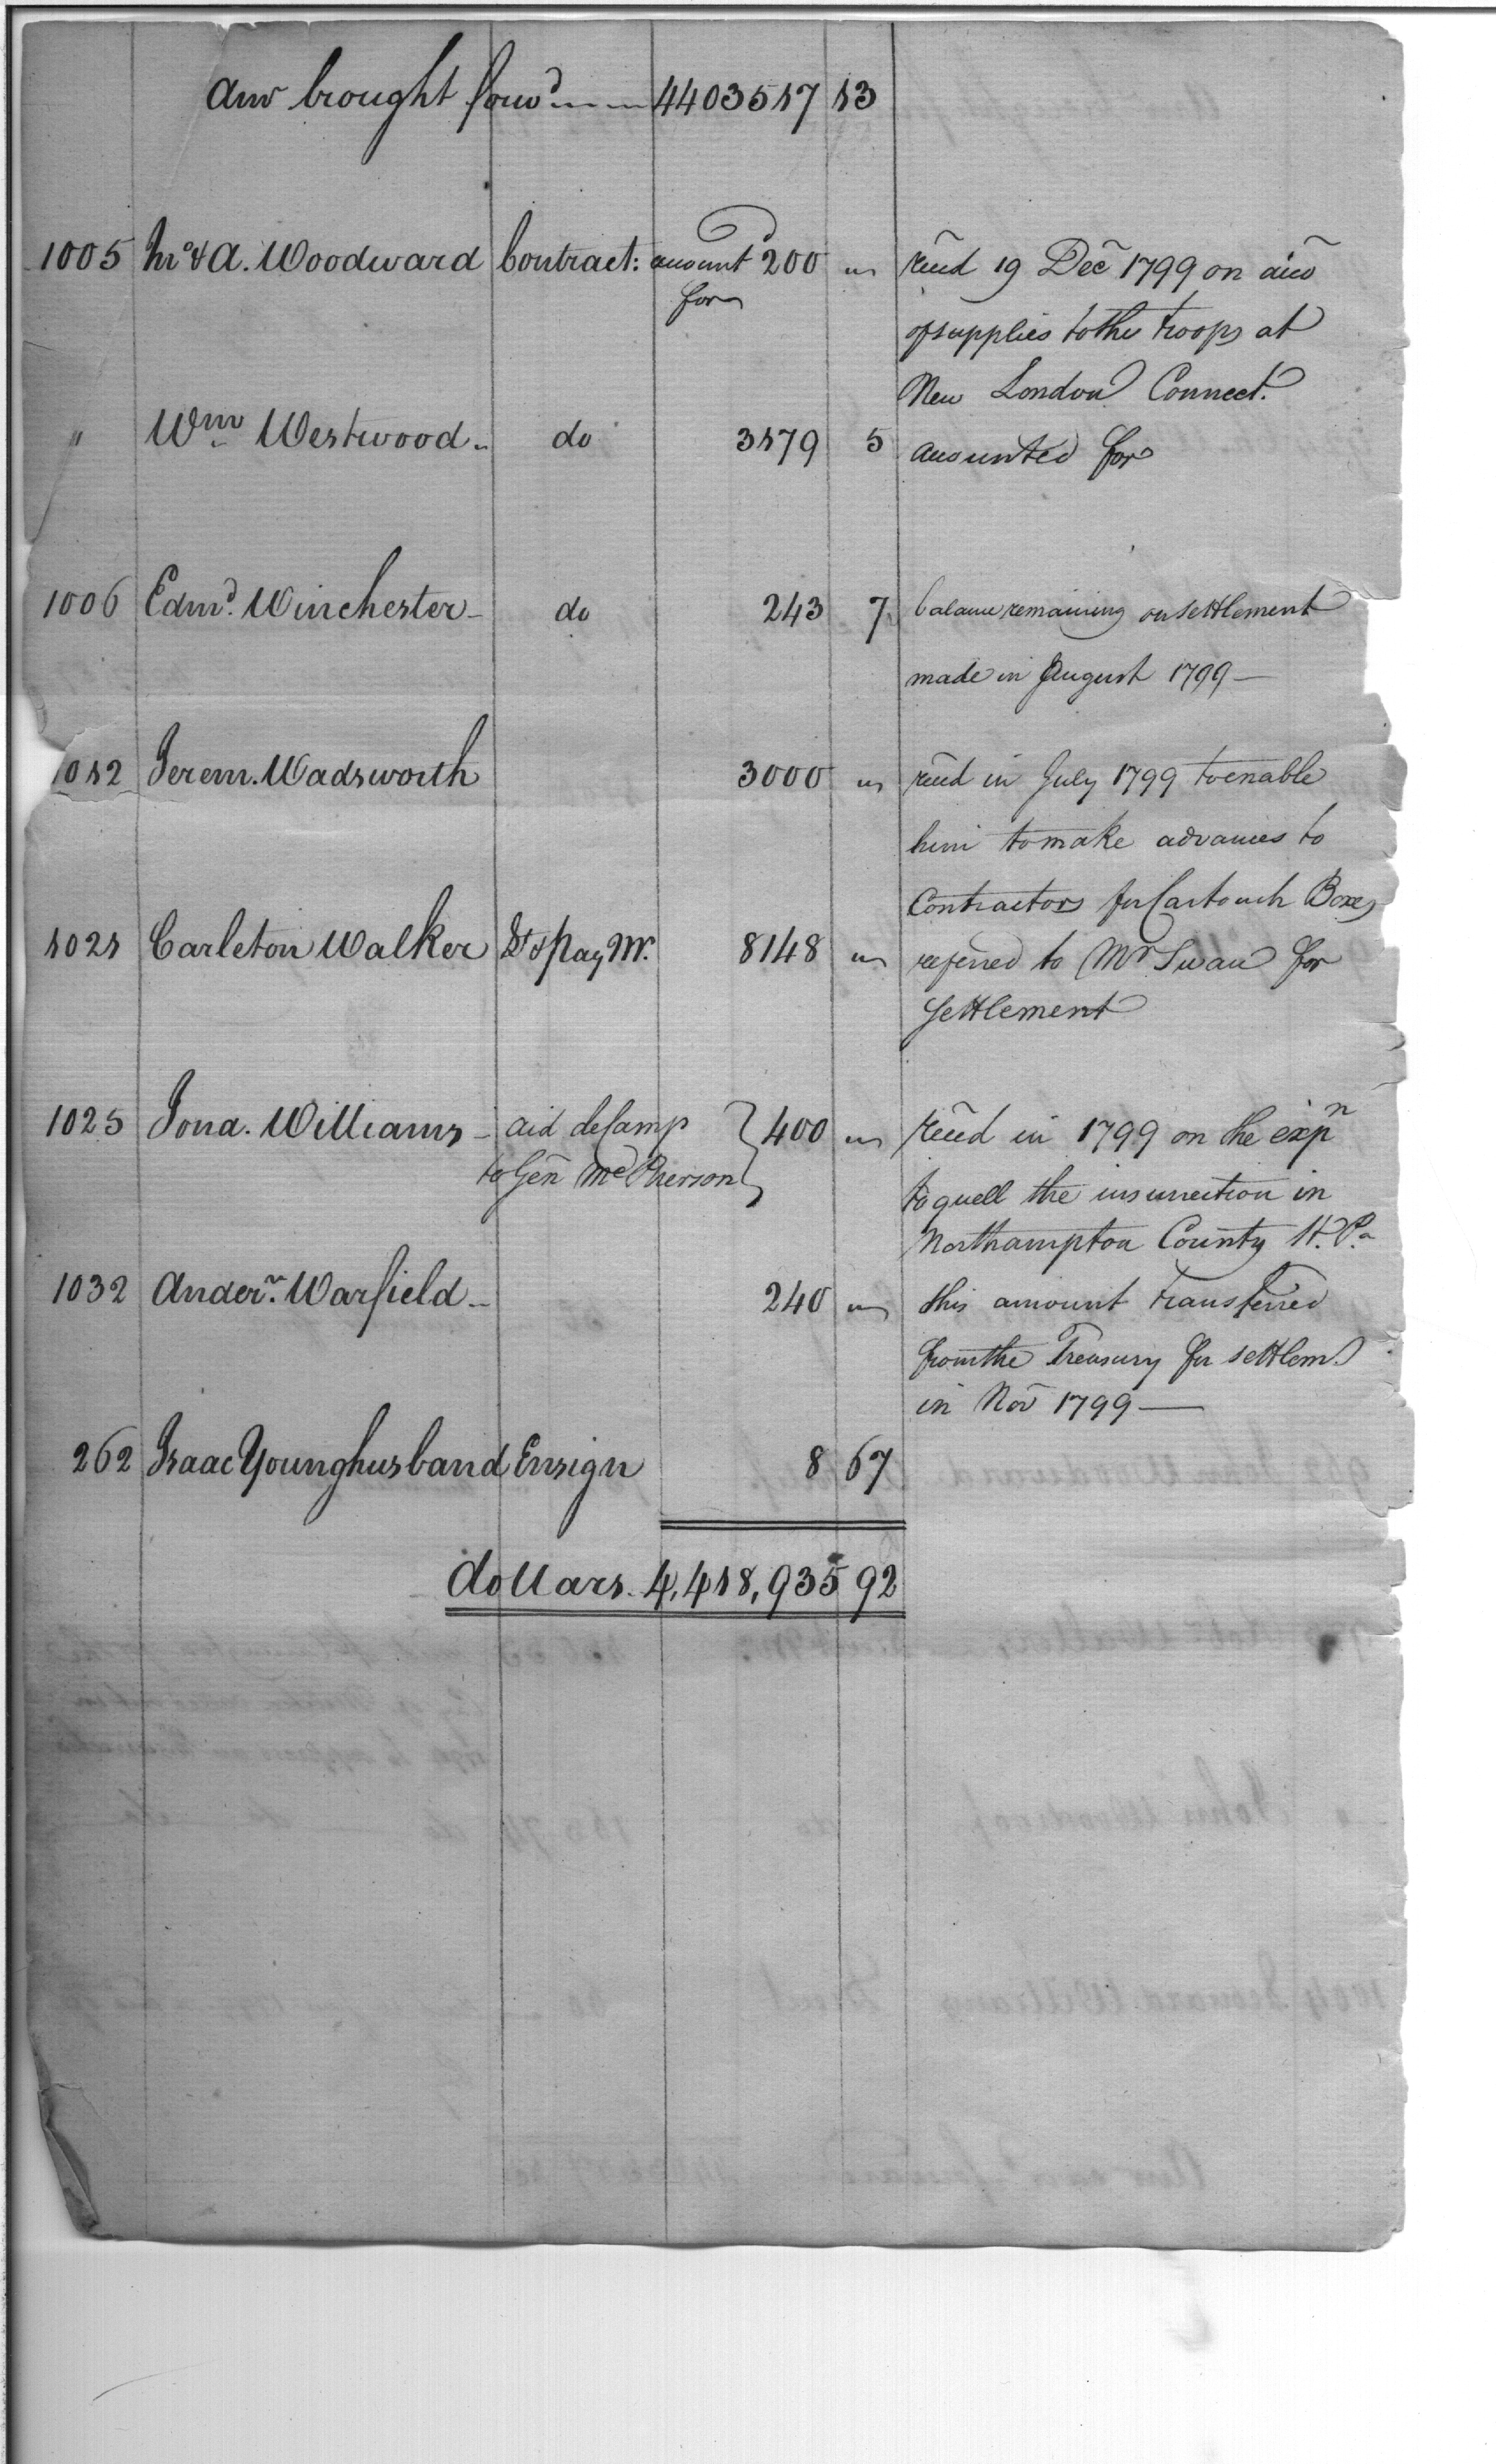 Am brought forwd 4403517 13
1005 Mr & A. Woodward Contract: amount for 200 " recd 19 Dec 1799 on acco
of supplies to the troops at
New London Connect.
" Wm Westwood do 3179 5 accounted for
1006 Edmd. Winchester do 243 7 balance remaining on settlement
made in August 1799
1012 Jerem. Wadsworth 3000 " recd in July 1799 to enable
him to make advances to
Contractors for Cartouch Boxes
1021 Carleton Walker Lt & Pay Mr. 8148 " referred to Mr Swan for
settlement
1025 Jona. Williams aid de Camp 400 " recd in 1799 on the expn
to Gen McPherson to quell the insurrection in
Northampton County Pa
1032 Andern. Warfield 240 " this amount transferred
from the Treasury for settlemt.
in Nov 1799
262 Isaac Younghusband Ensign 8 67
dollars 4,418,935 92